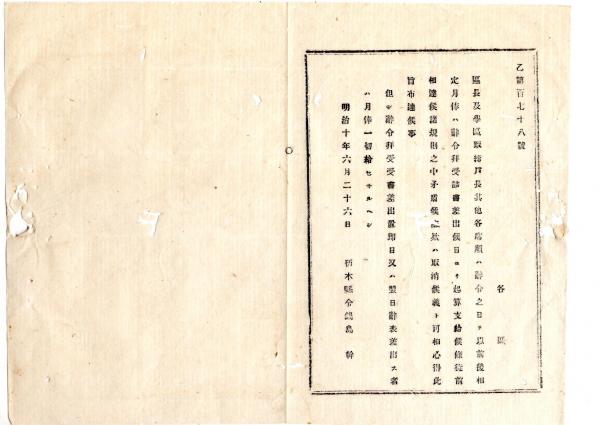 乙第百七十八號
各區
區長及學區取締戶長其他各席順ハ辭令之日ヲ以前後相
定月俸ハ辭令拜受請書差出候日ヨリ起算支給候條從前
相達候諸規則之中矛盾候ハ取消候義ト可相心得此
旨布達候事
但シ辭令拜受書差出置即日又ハ翌日辭表差出ス者
ハ月俸一切給セサルヘシ
明治十年六月二十六日
栃木縣令鍋島幹